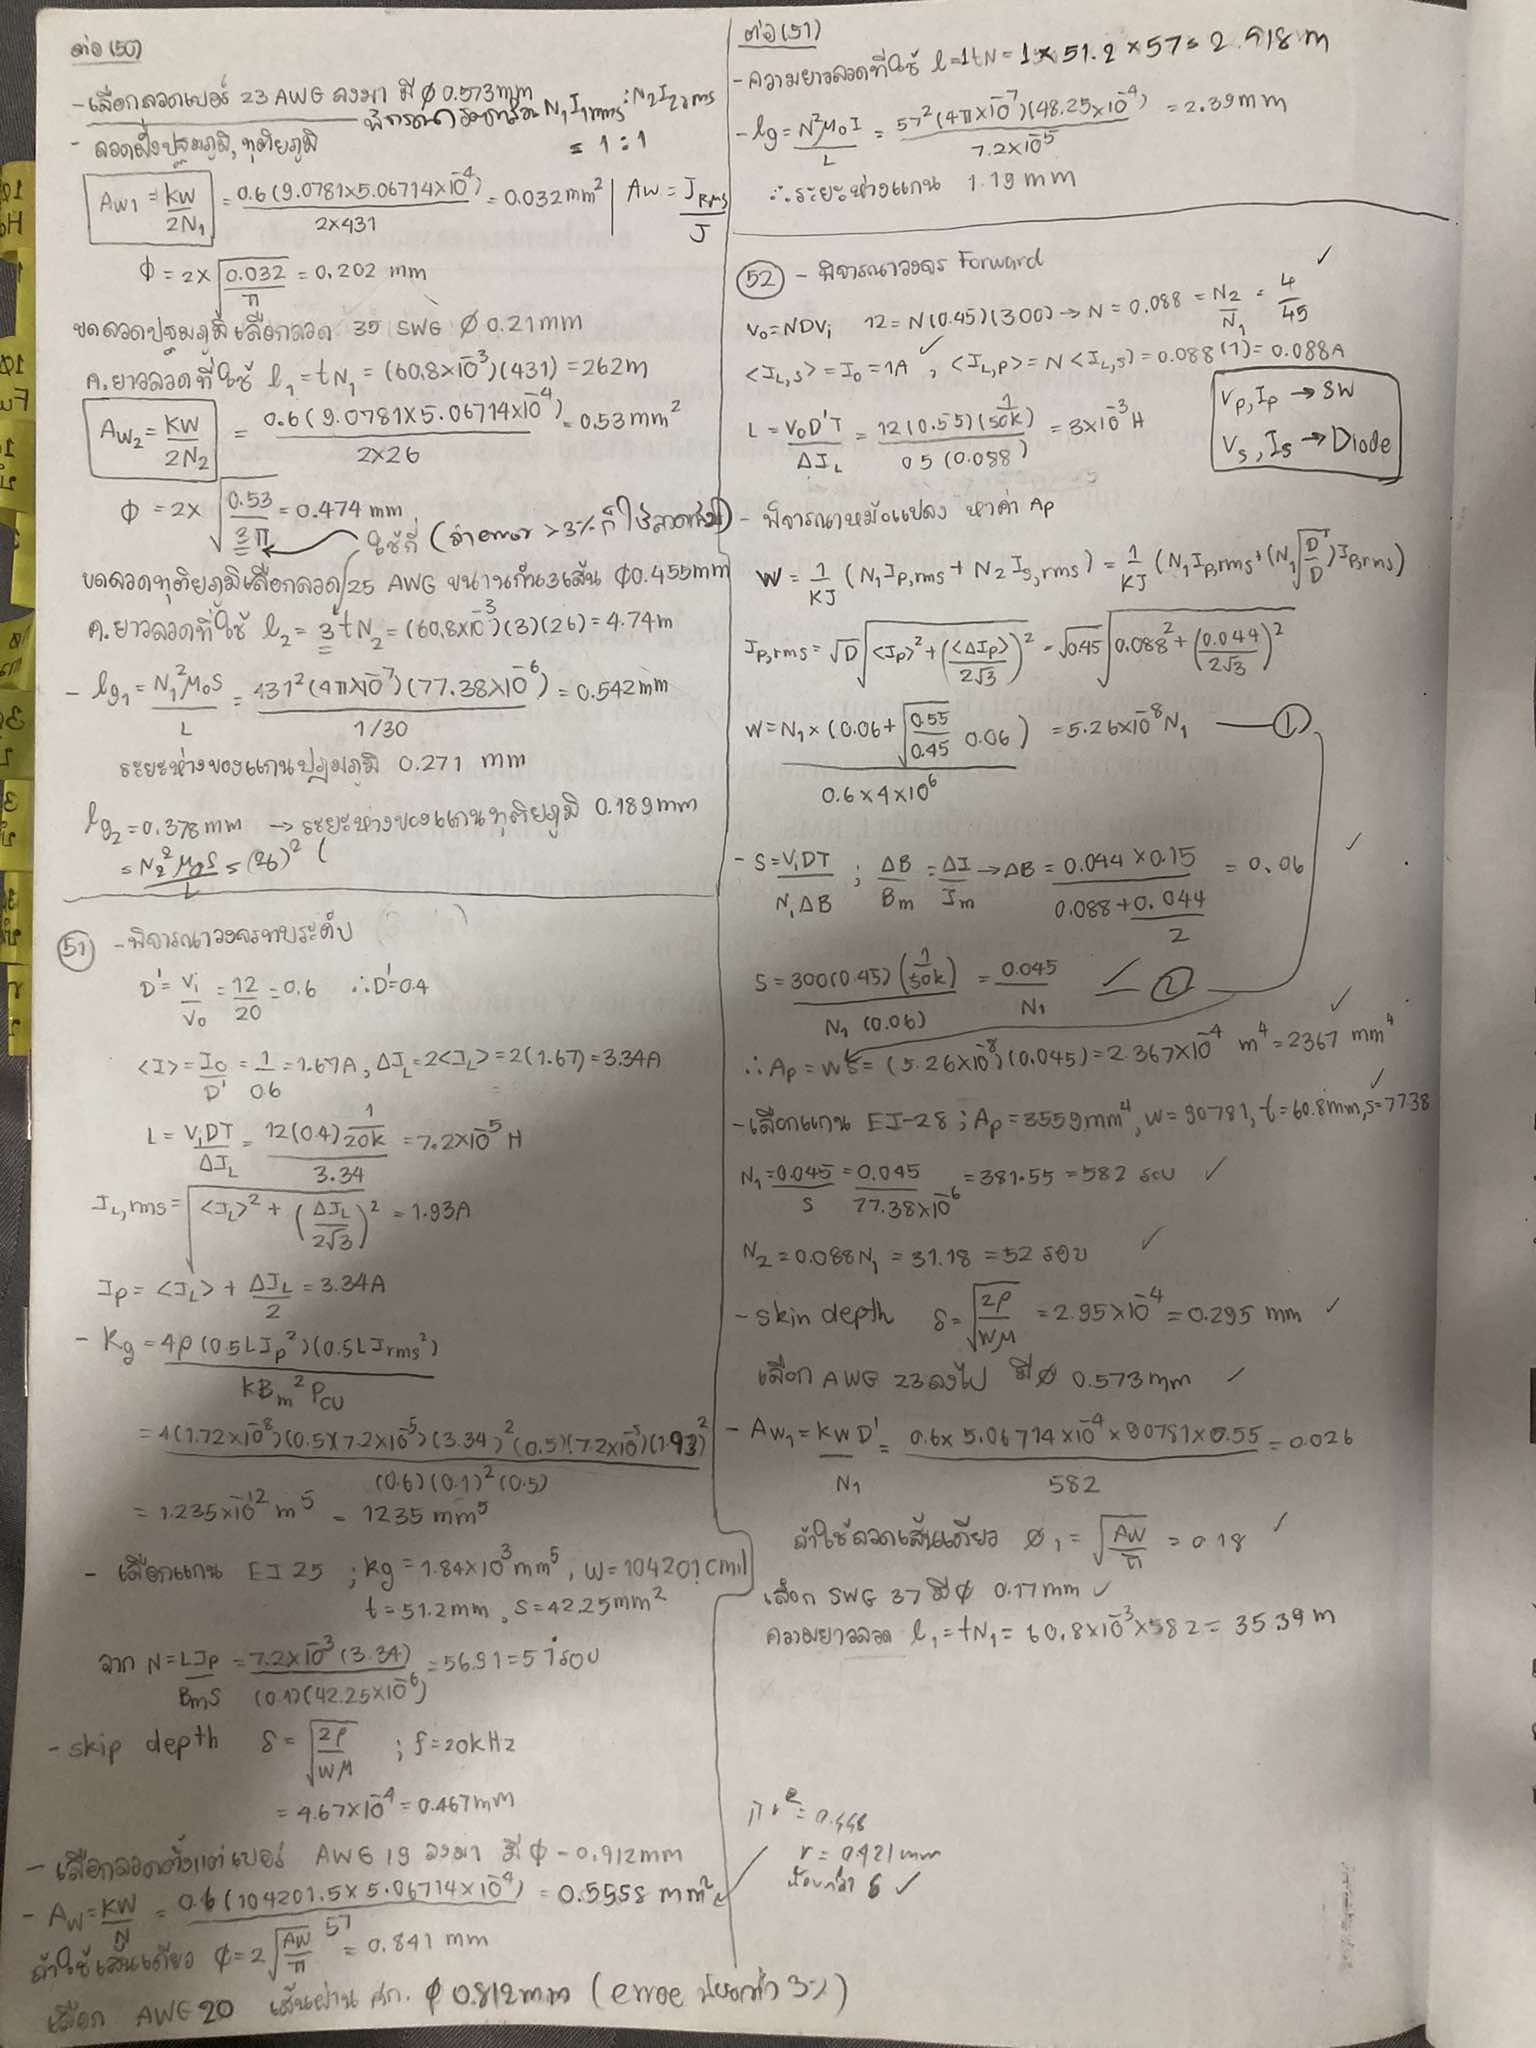 ต่อ (50)
- เลือกลวดเบอร์ 23 AWG ลงมา มี ϕ 0.573mm
- ลวดฝั่งปฐมภูมิ, ทุติยภูมิ N₁I₁rms : N₂I₂rms
= 1 : 1
Aw₁ = KW/2N₁ = 0.6(9.0781×5.06714×10⁻⁴)/2×431 = 0.032mm² | Aw = Irms/J
ϕ = 2×√(0.032/π) = 0.202 mm
ขดลวดปฐมภูมิเลือกลวด 35 SWG ϕ 0.21mm
ค.ยาวลวดที่ใช้ l₁ = tN₁ = (60.8×10⁻³)(431) = 262m
Aw₂ = KW/2N₂ = 0.6(9.0781×5.06714×10⁻⁴)/2×26 = 0.53mm²
ϕ = 2×√(0.53/3π) = 0.474 mm
ขดลวดทุติยภูมิเลือกลวด 25 AWG ขนานกัน 3 เส้น ϕ0.455mm
ค.ยาวลวดที่ใช้ l₂ = 3tN₂ = (60.8×10⁻³)(3)(26) = 4.74m
- lg₁ = N₁²μ₀S/L = 431²(4π×10⁻⁷)(77.38×10⁻⁶)/1/30 = 0.542mm
ระยะห่างของแกนปฐมภูมิ 0.271 mm
lg₂ = 0.378mm → ระยะห่างของแกนทุติยภูมิ 0.189mm
= N₂²μ₀S/L = (26)² (
51 - พิจารณาวงจรทบระดับ
D' = Vi/Vo = 12/20 = 0.6 ∴D'=0.4
<I> = Io/D' = 1/0.6 = 1.67A, ΔIL = 2<IL> = 2(1.67) = 3.34A
L = ViDT/ΔIL = 12(0.4)1/20k/3.34 = 7.2×10⁻⁵ H
IL,rms = √(<IL>² + (ΔIL/2√3)²) = 1.93A
Ip = <IL> + ΔIL/2 = 3.34A
- Kg = 4ρ(0.5LIp²)(0.5LIrms²)/KBm²Pcu
= 4(1.72×10⁻⁸)(0.5)(7.2×10⁻⁵)(3.34)²(0.5)(7.2×10⁻⁵)(1.93)²/(0.6)(0.1)²(0.5)
= 1.235×10⁻¹² m⁵ = 1235 mm⁵
- เลือกแกน EI 25 ; Kg = 1.84×10³mm⁵, W=104201cmil
t = 51.2mm, S=42.25mm²
จาก N = LIp/BmS = 7.2×10⁻³(3.34)/(0.1)(42.25×10⁻⁶) = 56.91 = 57รอบ
- skip depth δ = √(2ρ/Wμ) ; f = 20kHz
= 4.67×10⁻⁴ = 0.467mm
- เลือกลวดตั้งแต่เบอร์ AWG 19 ลงมา มี ϕ - 0.912mm
- Aw = KW/N = 0.6(104201.5×5.06714×10⁻⁴)/57 = 0.5558 mm²
ถ้าใช้เส้นเดียว ϕ = 2√(Aw/π) = 0.841 mm
เลือก AWG 20 เส้นผ่าน ศก. ϕ 0.812mm (erroe น้อยกว่า 3%)
ต่อ (51)
- ความยาวลวดที่ใช้ l=1tN = 1×51.2×57 = 2.918 m
- lg = N²μ₀I/L = 57²(4π×10⁻⁷)(48.25×10⁻⁴)/7.2×10⁻⁵ = 2.39mm
∴ระยะห่างแกน 1.19mm
52 - พิจารณาวงจร Forward ✓
Vo=NDVi 12=N(0.45)(300)→N = 0.088 = N₂/N₁ = 4/45
<IL,s> = Io = 1A ✓, <IL,p> = N<IL,s> = 0.088(1) = 0.088A
Vp, Ip → SW
Vs, Is → Diode
L = VoD'T/ΔIL = 12(0.55)(1/50k)/0.5(0.088) = 3×10⁻³ H
- พิจารณาหม้อแปลง หาค่า Ap
W = 1/KJ (N₁Ip,rms + N₂Is,rms) = 1/KJ (N₁Ip,rms + (N₁√(D'/D))Ip,rms)
Ip,rms = √D √(<Ip>² + (<ΔIp>/2√3)²) = √0.45 √(0.088² + (0.044/2√3)²)
W = N₁×(0.06+√(0.55/0.45) 0.06)/0.6×4×10⁶ = 5.26×10⁻⁸N₁ — 1
- S = ViDT/N₁ΔB ; ΔB/Bm = ΔI/Im → ΔB = 0.044×0.15/0.088+0.044/2 = 0.06 ✓
S = 300(0.45)(1/50k)/N₁(0.06) = 0.045/N₁ — 2
∴Ap = WS = (5.26×10⁻⁸)(0.045) = 2.367×10⁻⁴ m⁴ = 2367 mm⁴ ✓
- เลือกแกน EI-28 ; Ap = 3559mm⁴, W=90781, t=60.8mm, S=7738
N₁ = 0.045/S = 0.045/77.38×10⁻⁶ = 381.55 = 582 รอบ ✓
N₂ = 0.088N₁ = 31.18 = 52 รอบ ✓
- skin depth δ = √(2ρ/Wμ) = 2.95×10⁻⁴ = 0.295 mm ✓
เลือก AWG 23 ลงไป มี ϕ 0.573mm ✓
- Aw₁ = KWD'/N₁ = 0.6×5.06714×10⁻⁴×90781×0.55/582 = 0.026
ถ้าใช้ลวดเส้นเดียว ϕ₁ = √(Aw/π) = 0.18 ✓
เลือก SWG 37 มี ϕ 0.17mm ✓
ความยาวลวด l₁ = tN₁ = 60.8×10⁻³×582 = 35.39 m
r = 0.421mm
น้อยกว่า δ ✓